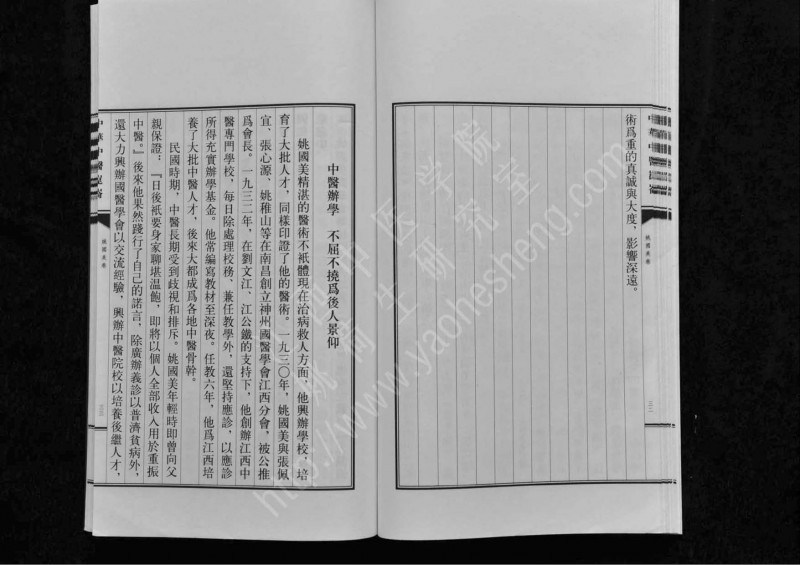 術爲重的真誠與大度，影響深遠。
姚國美卷
中醫辦學　不屈不撓爲後人景仰
姚國美精湛的醫術不祇體現在治病救人方面，他興辦學校，培
育了大批人才，同樣印證了他的醫術。一九三〇年，姚國美與張佩
宜、張心源、姚稚山等在南昌創立神州國醫學會江西分會，被公推
爲會長。一九三二年，在劉文江、江公鐵的支持下，他創辦江西中
醫專門學校，每日除處理校務、兼任教學外，還堅持應診，以應診
所得充實辦學基金。他常編寫教材至深夜。任教六年，他爲江西培
養了大批中醫人才，後來大都成爲各地中醫骨幹。
民國時期，中醫長期受到歧視和排斥。姚國美年輕時即曾向父
親保證：『日後祇要身家聊堪溫飽，即將以個人全部收入用於重振
中醫。』後來他果然踐行了自己的諾言，除廣辦義診以普濟貧病外，
還大力興辦國醫學會以交流經驗，興辦中醫院校以培養後繼人才，
姚國美卷
http://www.yaohesheng.com